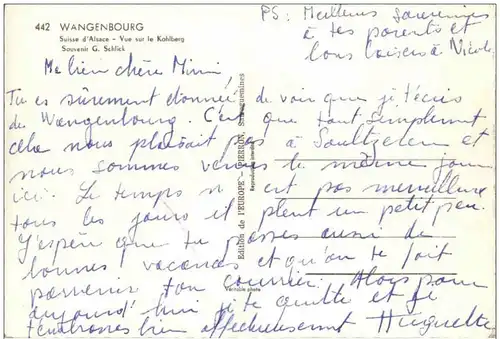 442 WANGENBOURG
Suisse d'Alsace - Vue sur le Kohlberg
Souvenir G. Schlick
PS: Meilleurs souvenirs
à tes parents et
bons baisers à Nicole
Ma bien chère Mimi
Tu es sûrement étonnée de voir que je t'écris
de Wangenbourg. C'est que tout simplement
cela nous plaisait pas à Soultzeren et
nous sommes venus le même jour
ici. Le temps n'est pas merveilleux
tous les jours et pleut un petit peu.
J'espère que tu passes aussi de
bonnes vacances et qu'on te fait
parvenir ton courrier. Alors pour
aujourd'hui je te quitte et je
t'embrasse bien affectueusement Huguette
Edition de l'EUROPE - PIERRON, Sarreguemines
Reproduction interdite
Véritable photo